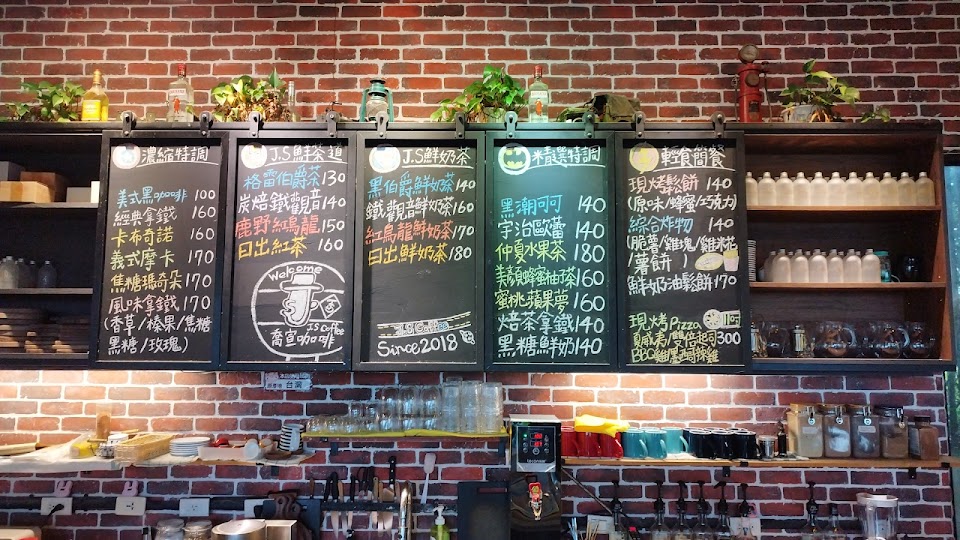 濃縮特調
美式黑咖啡 100
經典拿鐵 160
卡布奇諾 160
義式摩卡 170
焦糖瑪奇朵 170
風味拿鐵 170
(香草/榛果/焦糖
黑糖/玫瑰)
J.S鮮茶道
格雷伯爵茶 130
炭焙鐵觀音 140
鹿野紅烏龍 150
日出紅茶 160
Welcome
JS Coffee
喬宣咖啡
J.S鮮奶茶
黑伯爵鮮奶茶 140
鐵觀音鮮奶茶 160
紅烏龍鮮奶茶 170
日出鮮奶茶 180
Since 2018
精選特調
黑潮可可 140
宇治歐蕾 140
仲夏水果茶 180
美顏蜂蜜柚茶 160
蜜桃蘋果夢 160
焙茶拿鐵 140
黑糖鮮奶 140
輕食簡餐
現烤鬆餅 140
(原味/蜂蜜/巧克力)
綜合炸物 140
(脆薯/雞塊/雞米花
/薯餅)
鮮奶油鬆餅 170
現烤Pizza
夏威夷/雙倍起司 300
BBQ雞/墨西哥辣雞
台灣